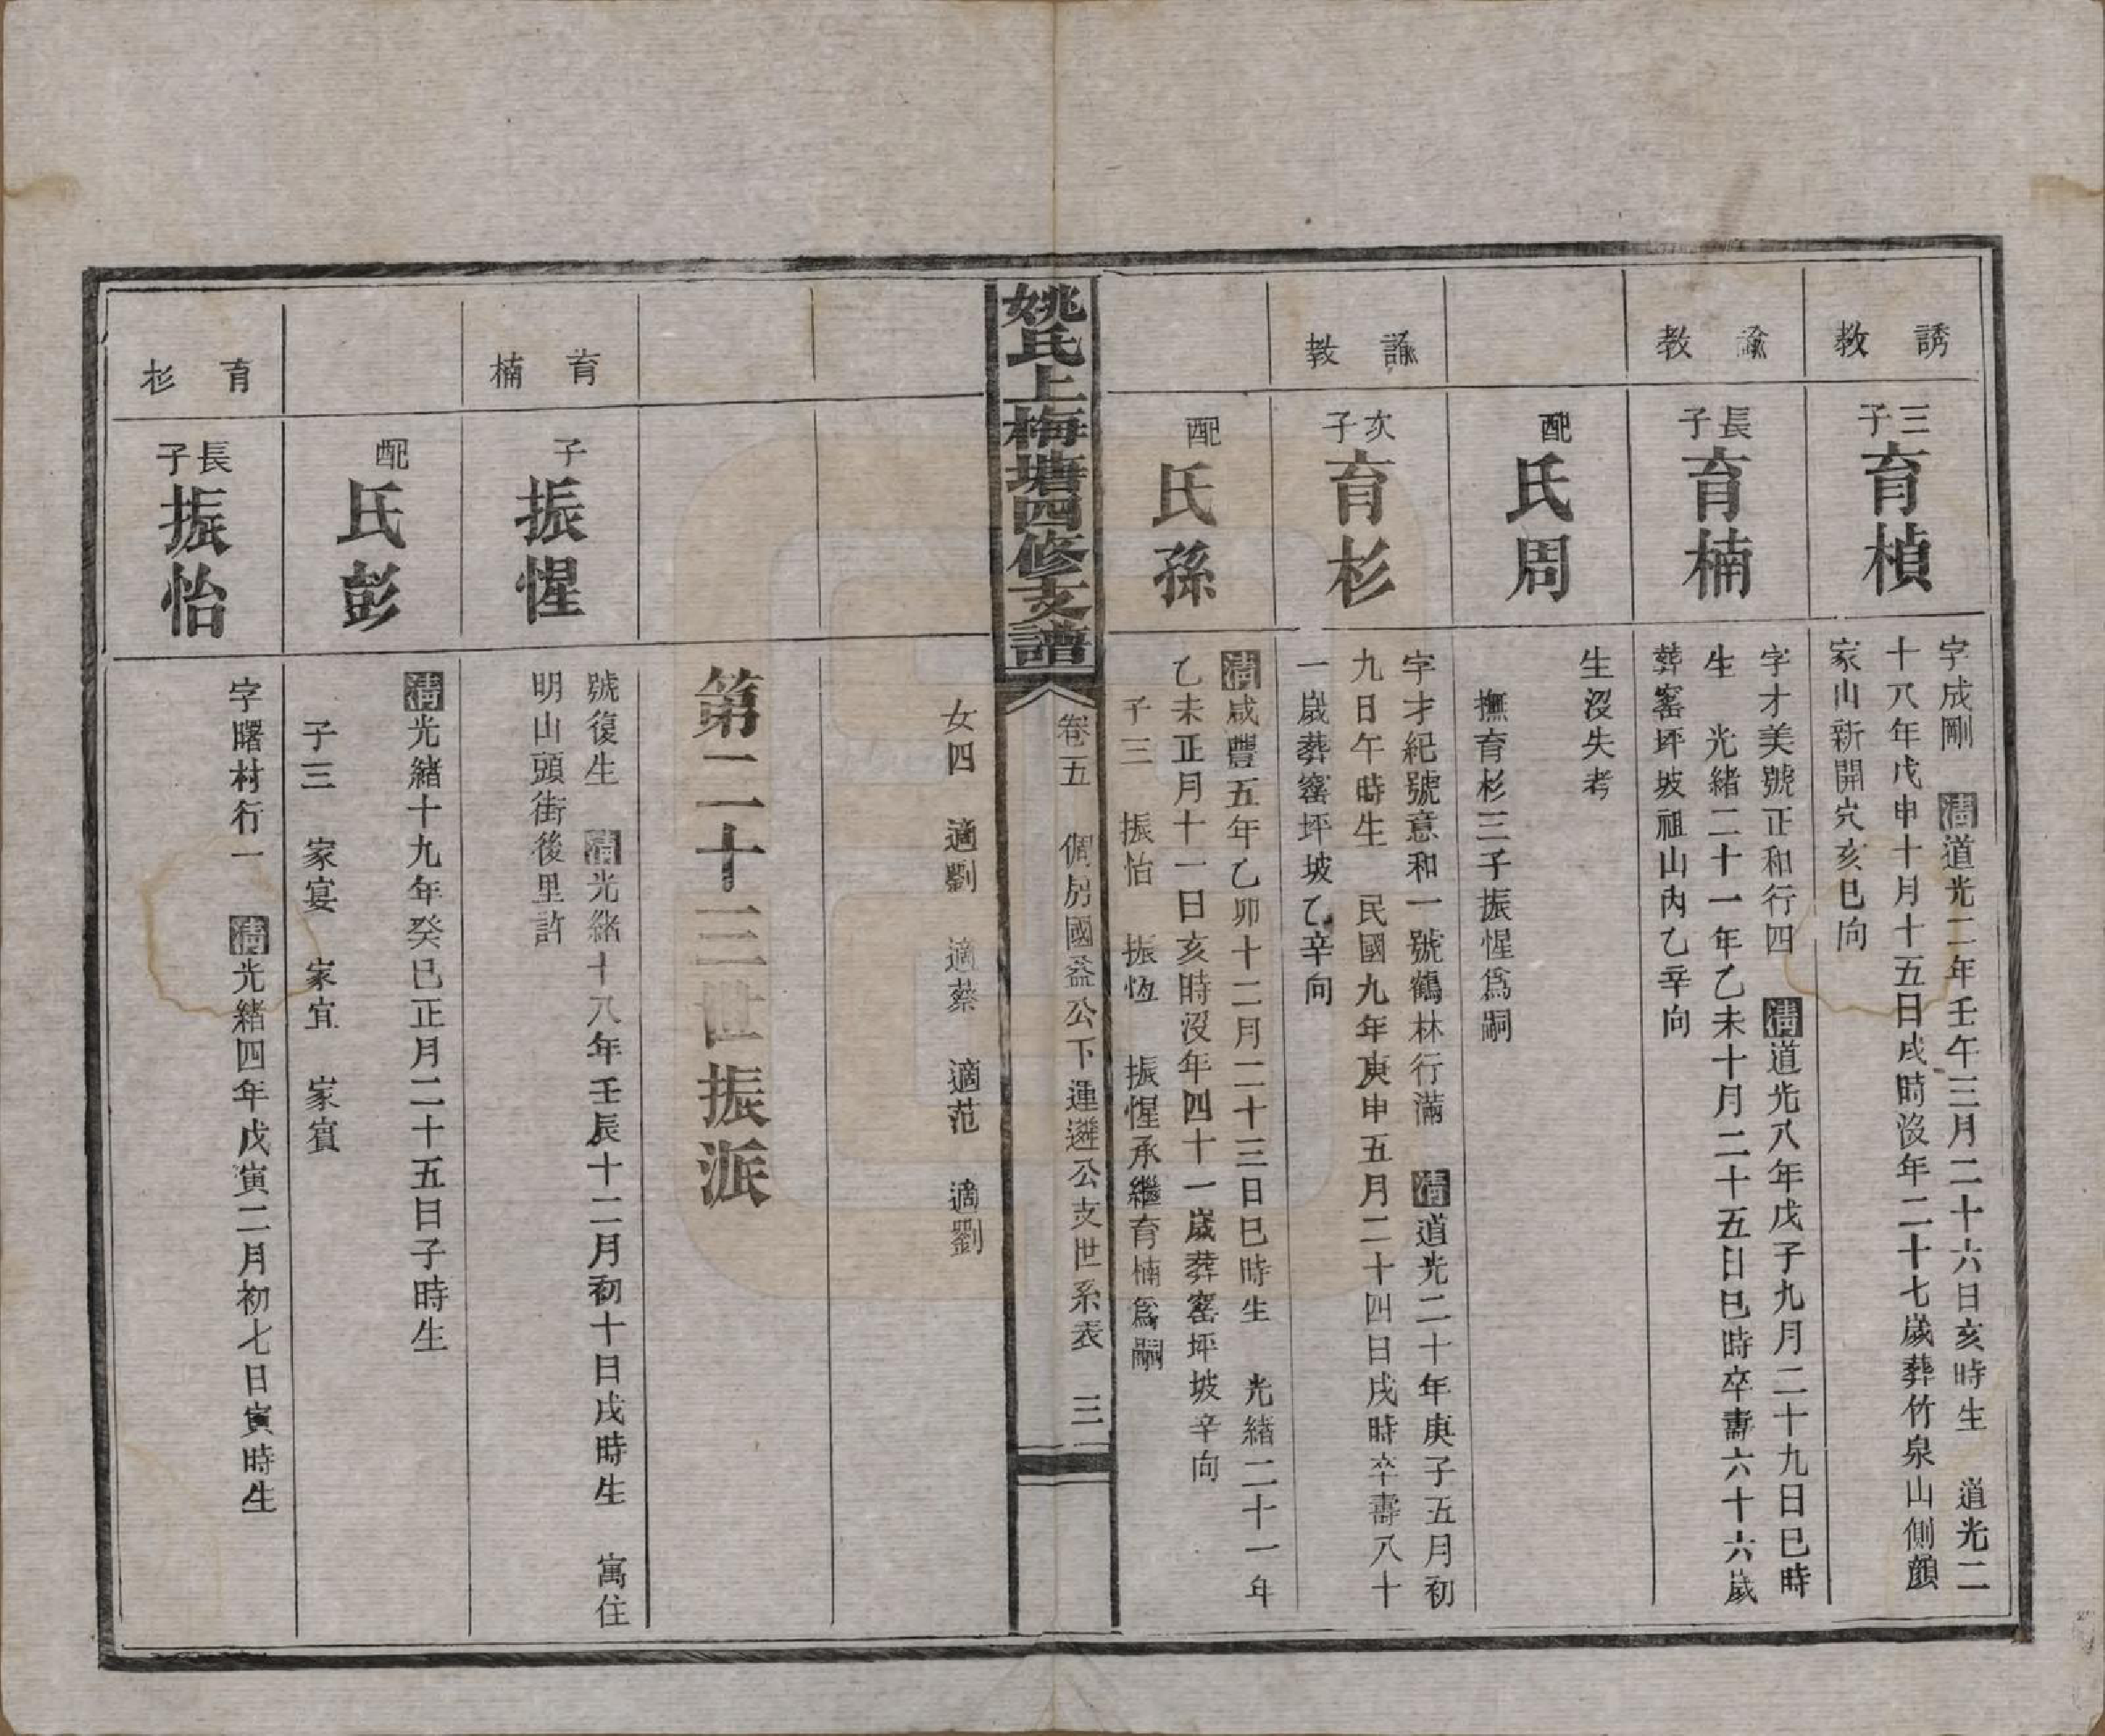 誘教
三子育楨
字成剛　清道光二年壬午三月二十六日亥時生　道光二
十八年戊申十月十五日戌時沒年二十七歲葬竹泉山側顏
家山新開穴亥巳向
諭教
長子育楠
字才美號正和行四　清道光八年戊子九月二十九日巳時
生　光緒二十一年乙未十月二十五日巳時卒壽六十六歲
葬窰坪坡祖山內乙辛向
配氏周
生沒失考
撫育杉三子振惺爲嗣
諭教
次子育杉
字才紀號意和一號鶴林行滿　清道光二十年庚子五月初
九日午時生　民國九年庚申五月二十四日戌時卒壽八十
一歲葬窰坪坡乙辛向
配氏孫
清咸豐五年乙卯十二月二十三日巳時生　光緒二十一年
乙未正月十一日亥時沒年四十一歲葬窰坪坡辛向
子三　振怡　振恆　振惺承繼育楠爲嗣
姚氏上梅塘四修支譜
卷五　倜房國益公下運遴公支世系表　三
女四　適劉　適蔡　適范　適劉
第二十三世振派
育楠
子振惺
號復生　清光緒十八年壬辰十二月初十日戌時生　寓住
明山頭街後里許
配氏彭
清光緒十九年癸巳正月二十五日子時生
子三　家宴　家宜　家賓
育杉
長子振怡
字曙村行一　清光緒四年戊寅二月初七日寅時生